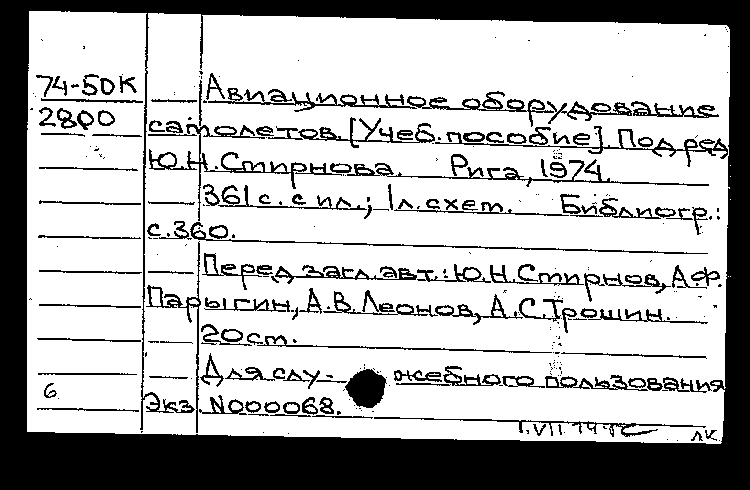 74-50К Авиационное оборудование
2800 самолетов. [Учеб. пособие]. Под ред
Ю.Н. Смирнова. Рига, 1974.
361 с. с ил.; 1 л. схем. Библиогр.:
с. 360.
Перед загл. авт.: Ю.Н. Смирнов, А.Ф.
Парыгин, А.В. Леонов, А.С. Трошин.
20 см.
Для слу- жебного пользования
6 Экз. N000068.
лк